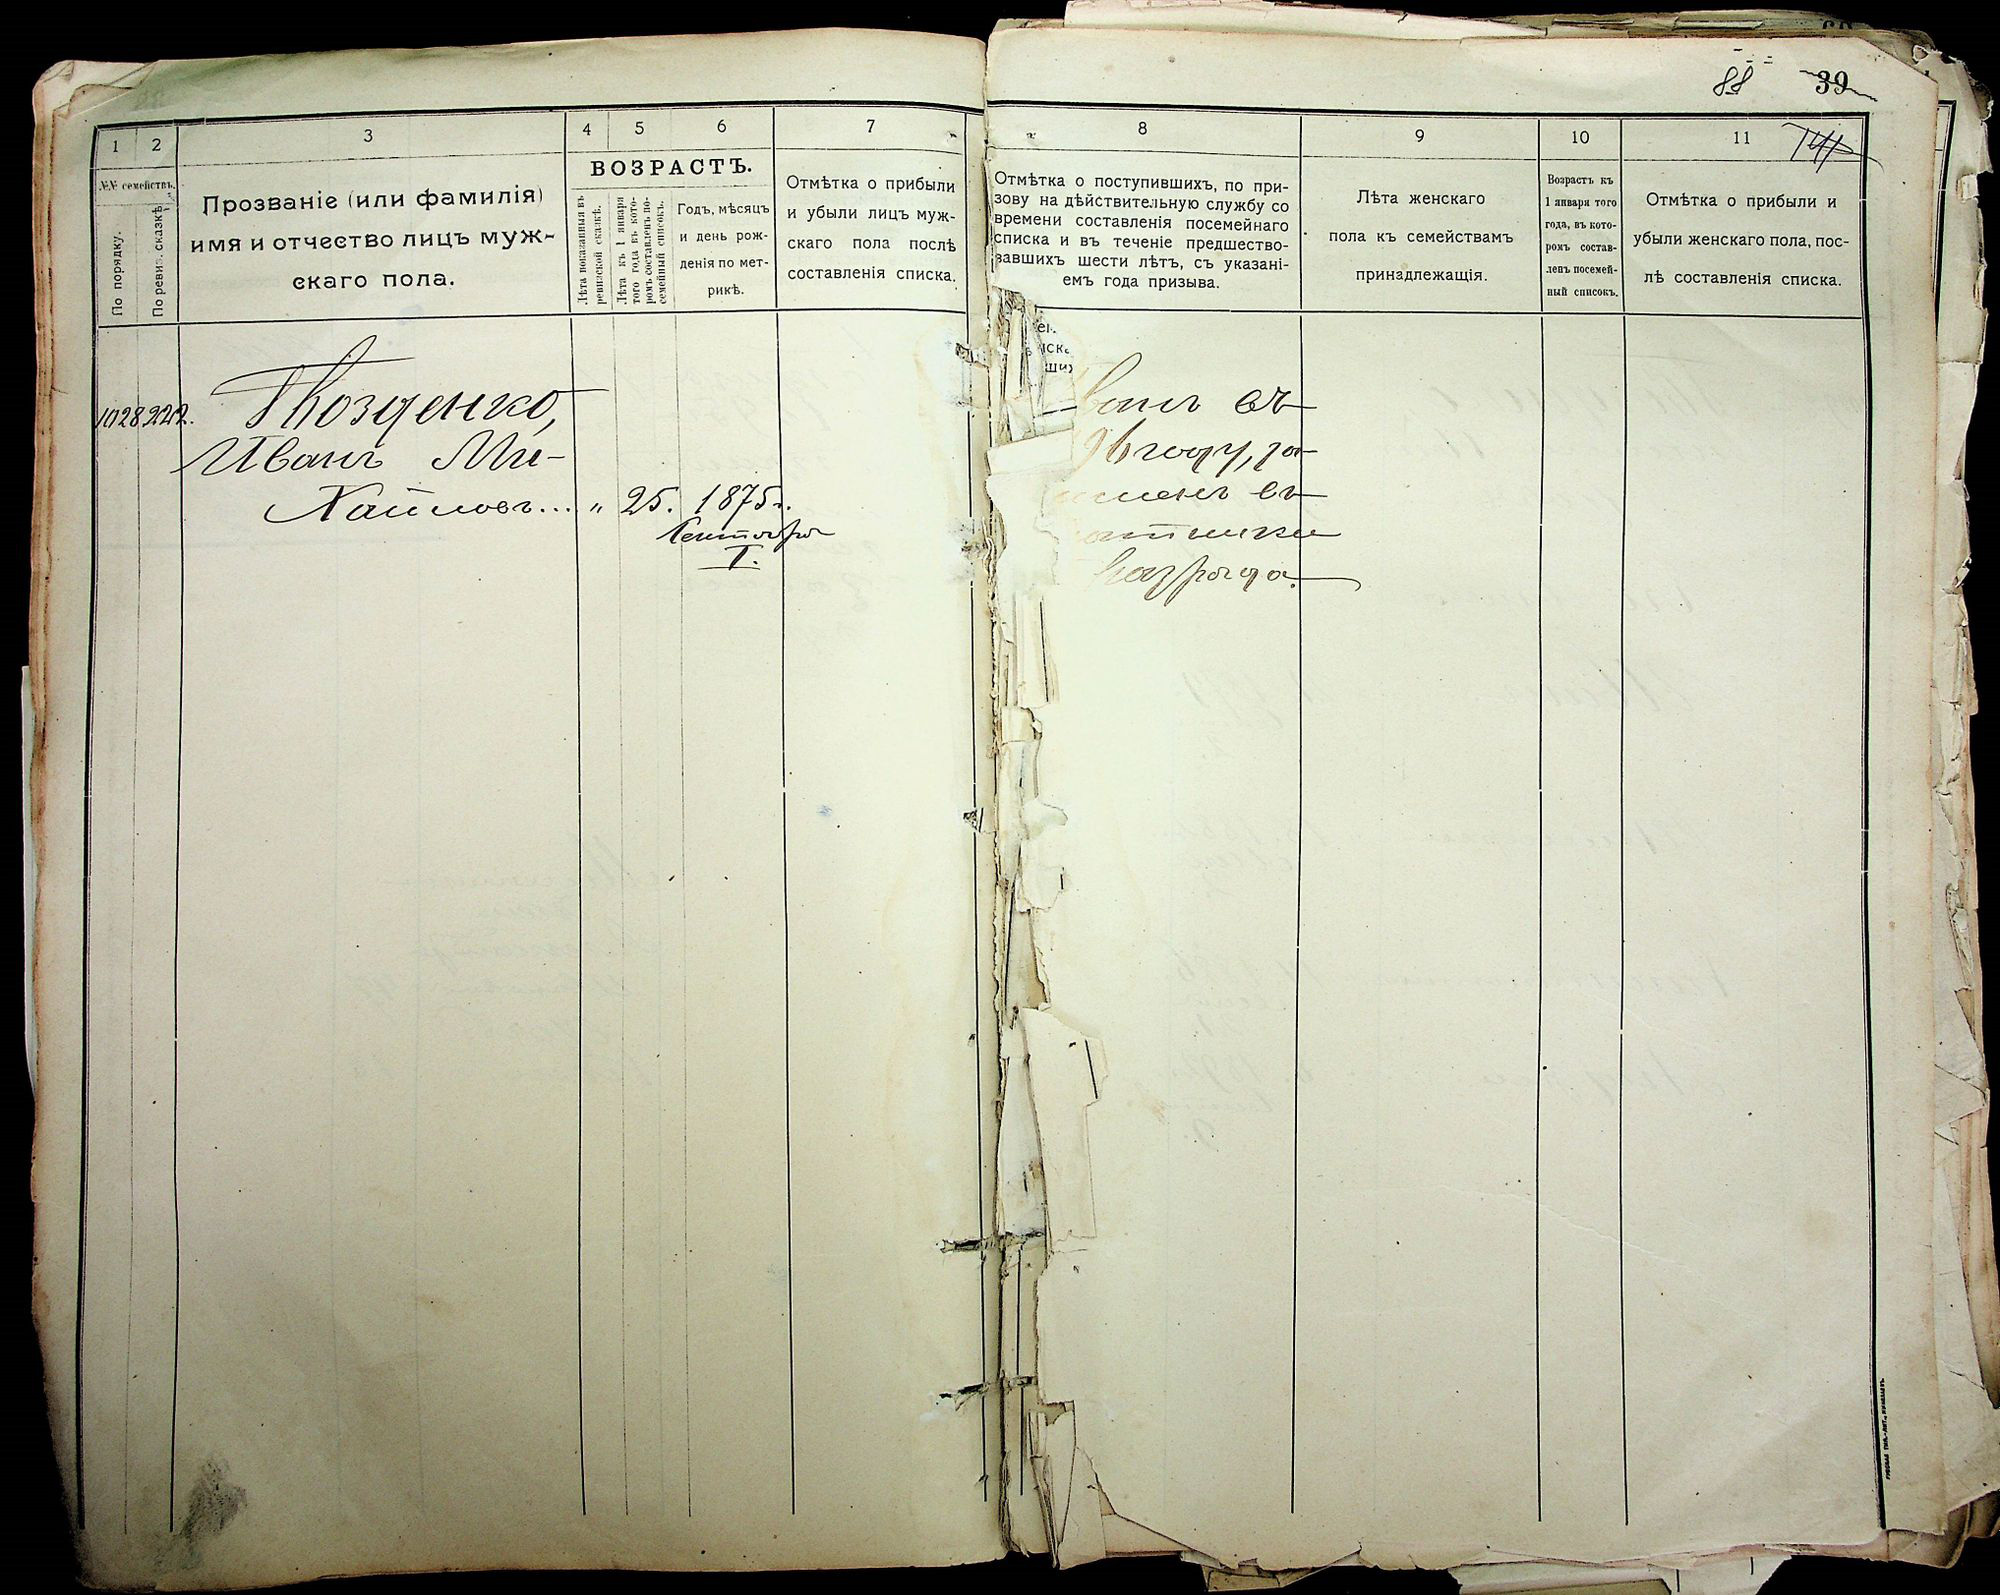 88 39
1 2 3 4 5 6 7 8 9 10 11
№№ семействъ.
По порядку.
По ревиз. сказкѣ.
Прозваніе (или фамилія)
имя и отчество лицъ муж-
скаго пола.
ВОЗРАСТЪ.
Лѣта показанныя въ
ревизской сказкѣ.
Лѣта къ 1 января
того года въ кото-
ромъ составленъ по-
семейный списокъ.
Годъ, мѣсяцъ
и день рож-
денія по мет-
рикѣ.
Отмѣтка о прибыли
и убыли лицъ муж-
скаго пола послѣ
составленія списка.
Отмѣтка о поступившихъ, по при-
зову на дѣйствительную службу со
времени составленія посемейнаго
списка и въ теченіе предшество-
вавшихъ шести лѣтъ, съ указані-
емъ года призыва.
Лѣта женскаго
пола къ семействамъ
принадлежащія.
Возрастъ къ
1 января того
года, въ кото-
ромъ состав-
ленъ посемей-
ный списокъ.
Отмѣтка о прибыли и
убыли женскаго пола, пос-
лѣ составленія списка.
1028 222. Гвозденко,
Иванъ Ми-
хайловъ... „ 25. 1875 г.
Сентября
1.
ванъ въ
96 году, за-
въ
разряда.